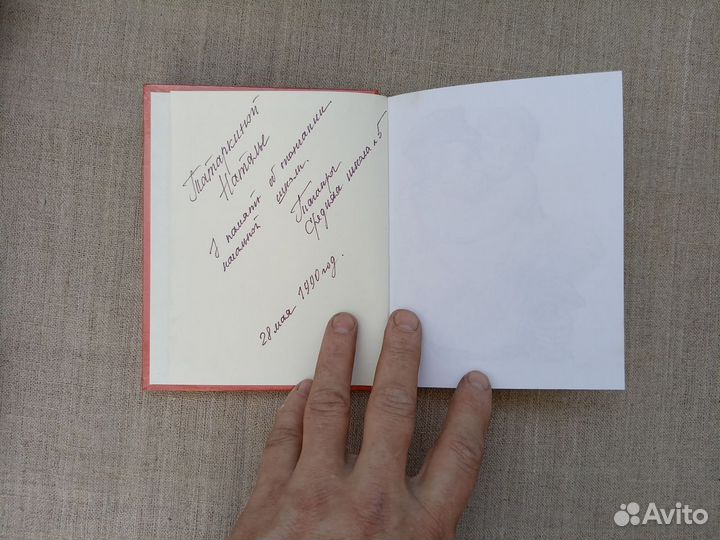 Татаркиной
Наталье
В память об окончании
начальной школы.
Таганрог
Средняя школа №5
28 мая 1990 год.
Avito